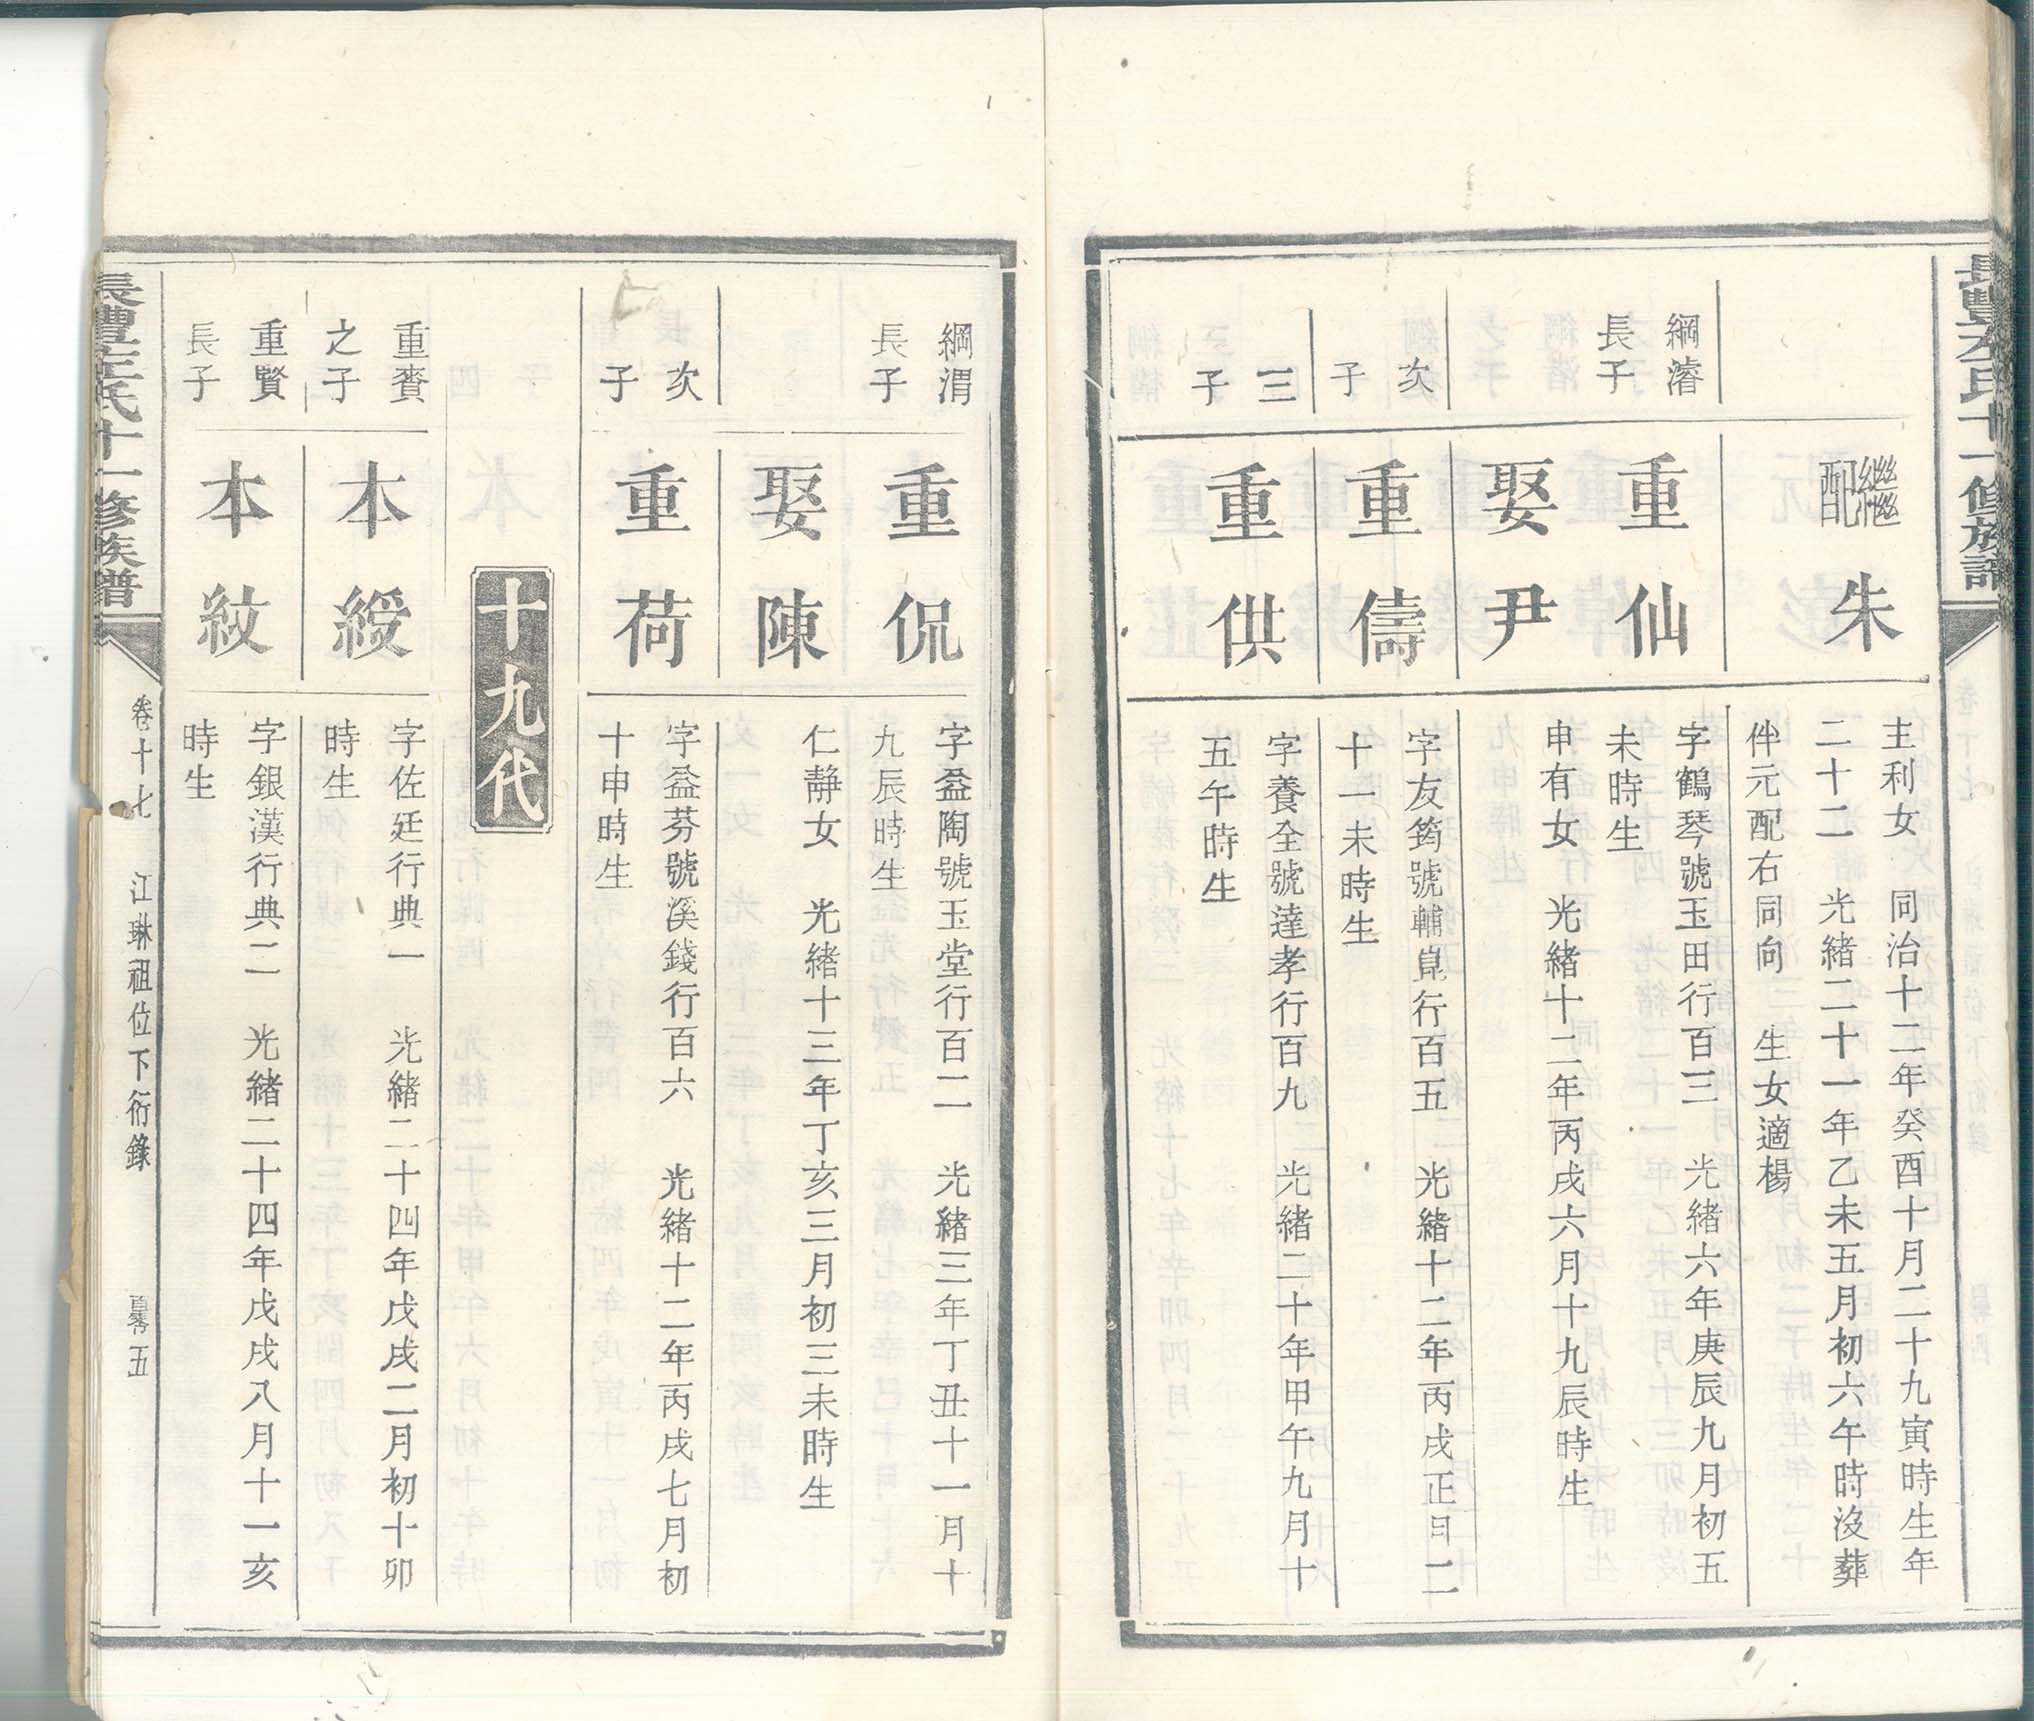 長豐左氏十一修族譜
繼配
朱
主利女　同治十二年癸酉十月二十九寅時生年
二十二　光緒二十一年乙未五月初六午時沒葬
伴元配右同向　生女適楊
綱濬
長子
重仙
字鶴琴號玉田行百三　光緒六年庚辰九月初五
未時生
娶尹
申有女　光緒十二年丙戌六月十九辰時生
次
子
重儔
字友筠號輔崑行百五　光緒十二年丙戌正月二
十一未時生
三
子
重供
字養全號達孝行百九　光緒二十年甲午九月十
五午時生
綱渭
長子
重侃
字益陶號玉堂行百二　光緒三年丁丑十一月十
九辰時生
娶陳
仁靜女　光緒十三年丁亥三月初三未時生
次
子
重荷
字益芬號溪錢行百六　光緒十二年丙戌七月初
十申時生
十九代
重賚
之子
本綬
字佐廷行典一　光緒二十四年戊戌二月初十卯
時生
重賢
長子
本紋
字銀漢行典二　光緒二十四年戊戌八月十一亥
時生
長豐左氏十一修族譜
卷十七　江琳祖位下衍錄　百零五